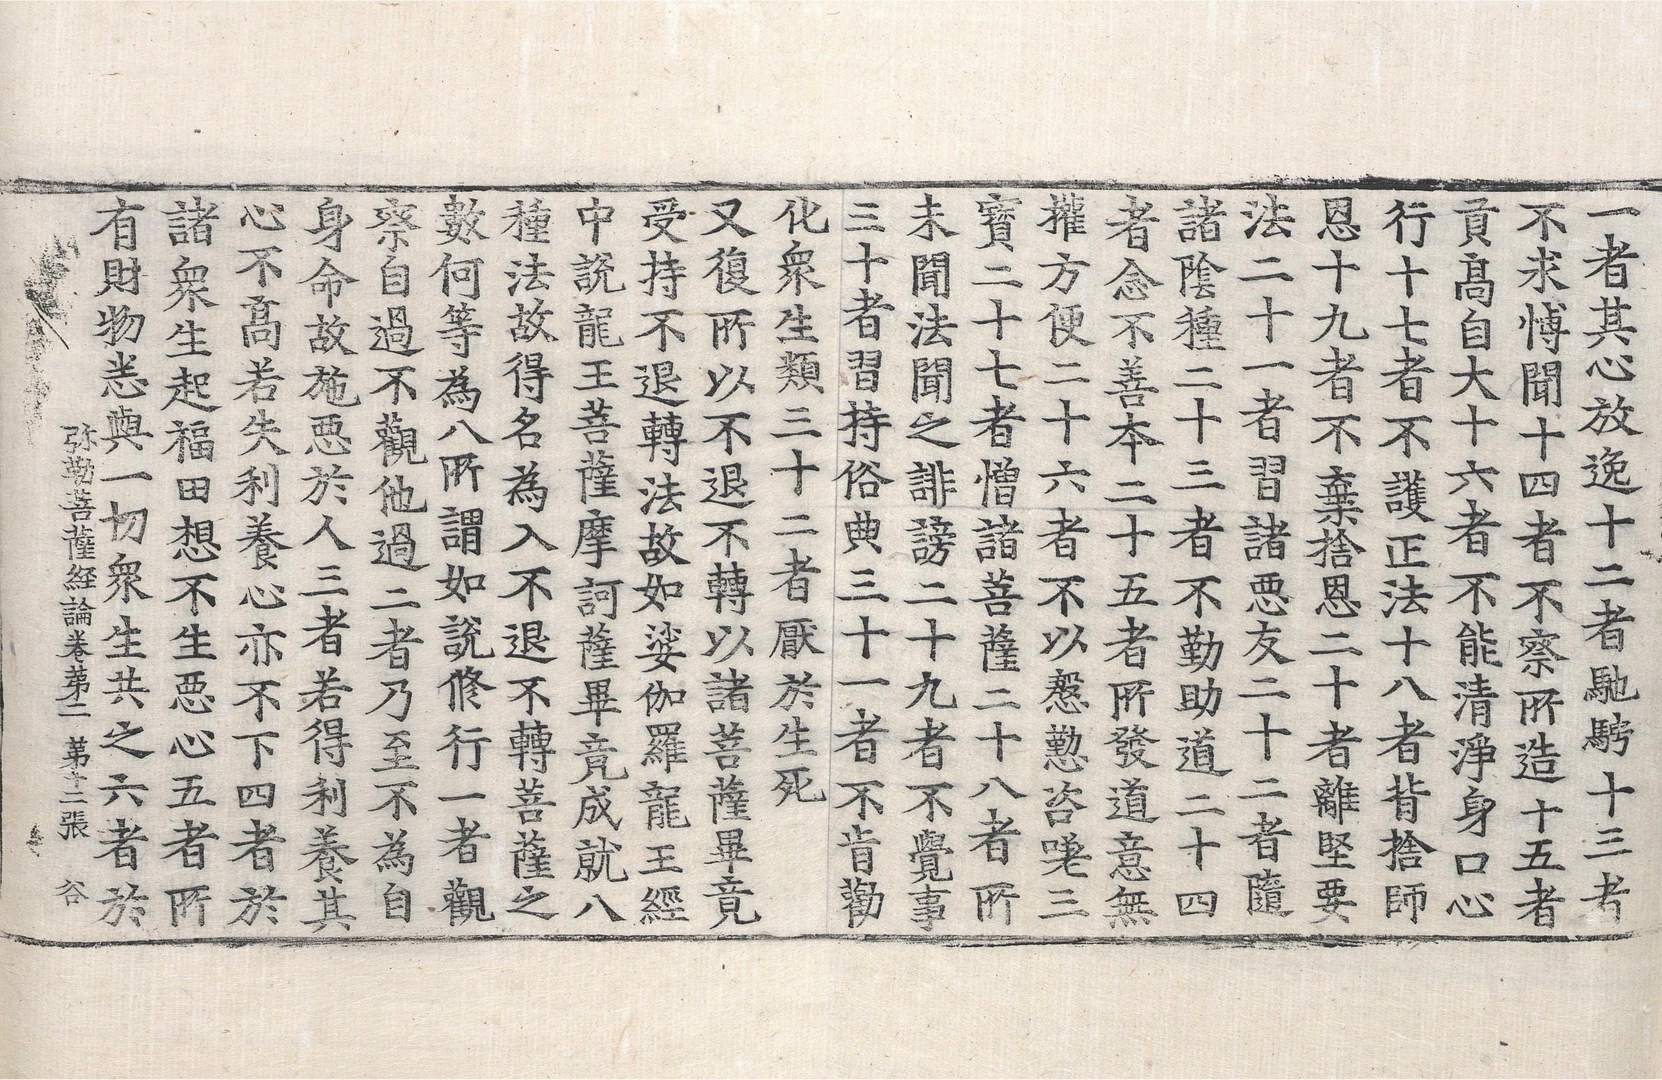 一者其心放逸十二者馳騁十三者
不求博聞十四者不察所造十五者
貢高自大十六者不能清淨身口心
行十七者不護正法十八者背捨師
恩十九者不棄捨恩二十者離堅要
法二十一者習諸惡友二十二者隨
諸陰種二十三者不勤助道二十四
者念不善本二十五者所發道意無
攉方便二十六者不以慇懃咨嗟三
寳二十七者憎諸菩薩二十八者所
未聞法聞之誹謗二十九者不覺事
三十者習持俗典三十一者不肯勸
化衆生類三十二者厭於生死
又復所以不退不轉以諸菩薩畢竟
受持不退轉法故如娑伽羅龍王經
中說龍王菩薩摩訶薩畢竟成就八
種法故得名為入不退不轉菩薩之
數何等為八所謂如說修行一者觀
察自過不觀他過二者乃至不為自
身命故施惡於人三者若得利養其
心不高若失利養心亦不下四者於
諸衆生起福田想不生惡心五者所
有財物悉與一切衆生共之六者於
弥勒菩薩経論卷苐二 苐十二張 谷